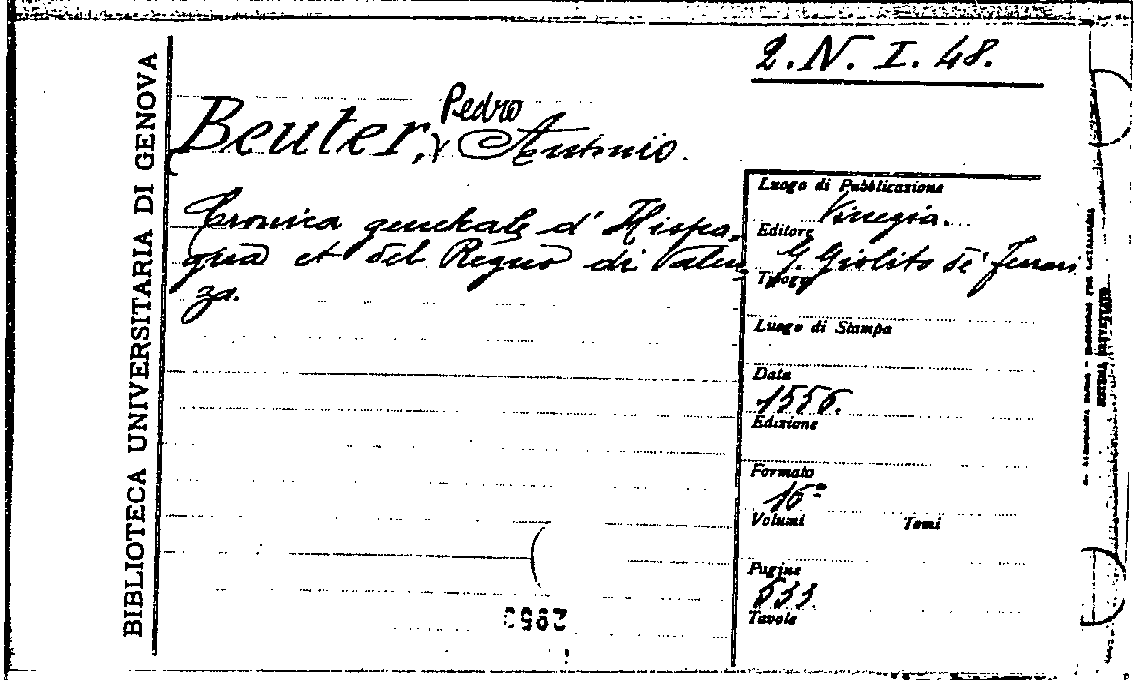 BIBLIOTECA UNIVERSITARIA DI GENOVA
2. N. I. 48.
Pedro
Beuter, Antonio.
Cronica generale d' Hispa-
gna et del Regno di Valen-
za.
Luogo di Pubblicazione
Vinegia.
Editore
G. Giolito de' Ferrari
Tipogr.
Luogo di Stampa
Data
1556.
Edizione
Formato
16°
Volumi Tomi
Pagine
533
Tavole